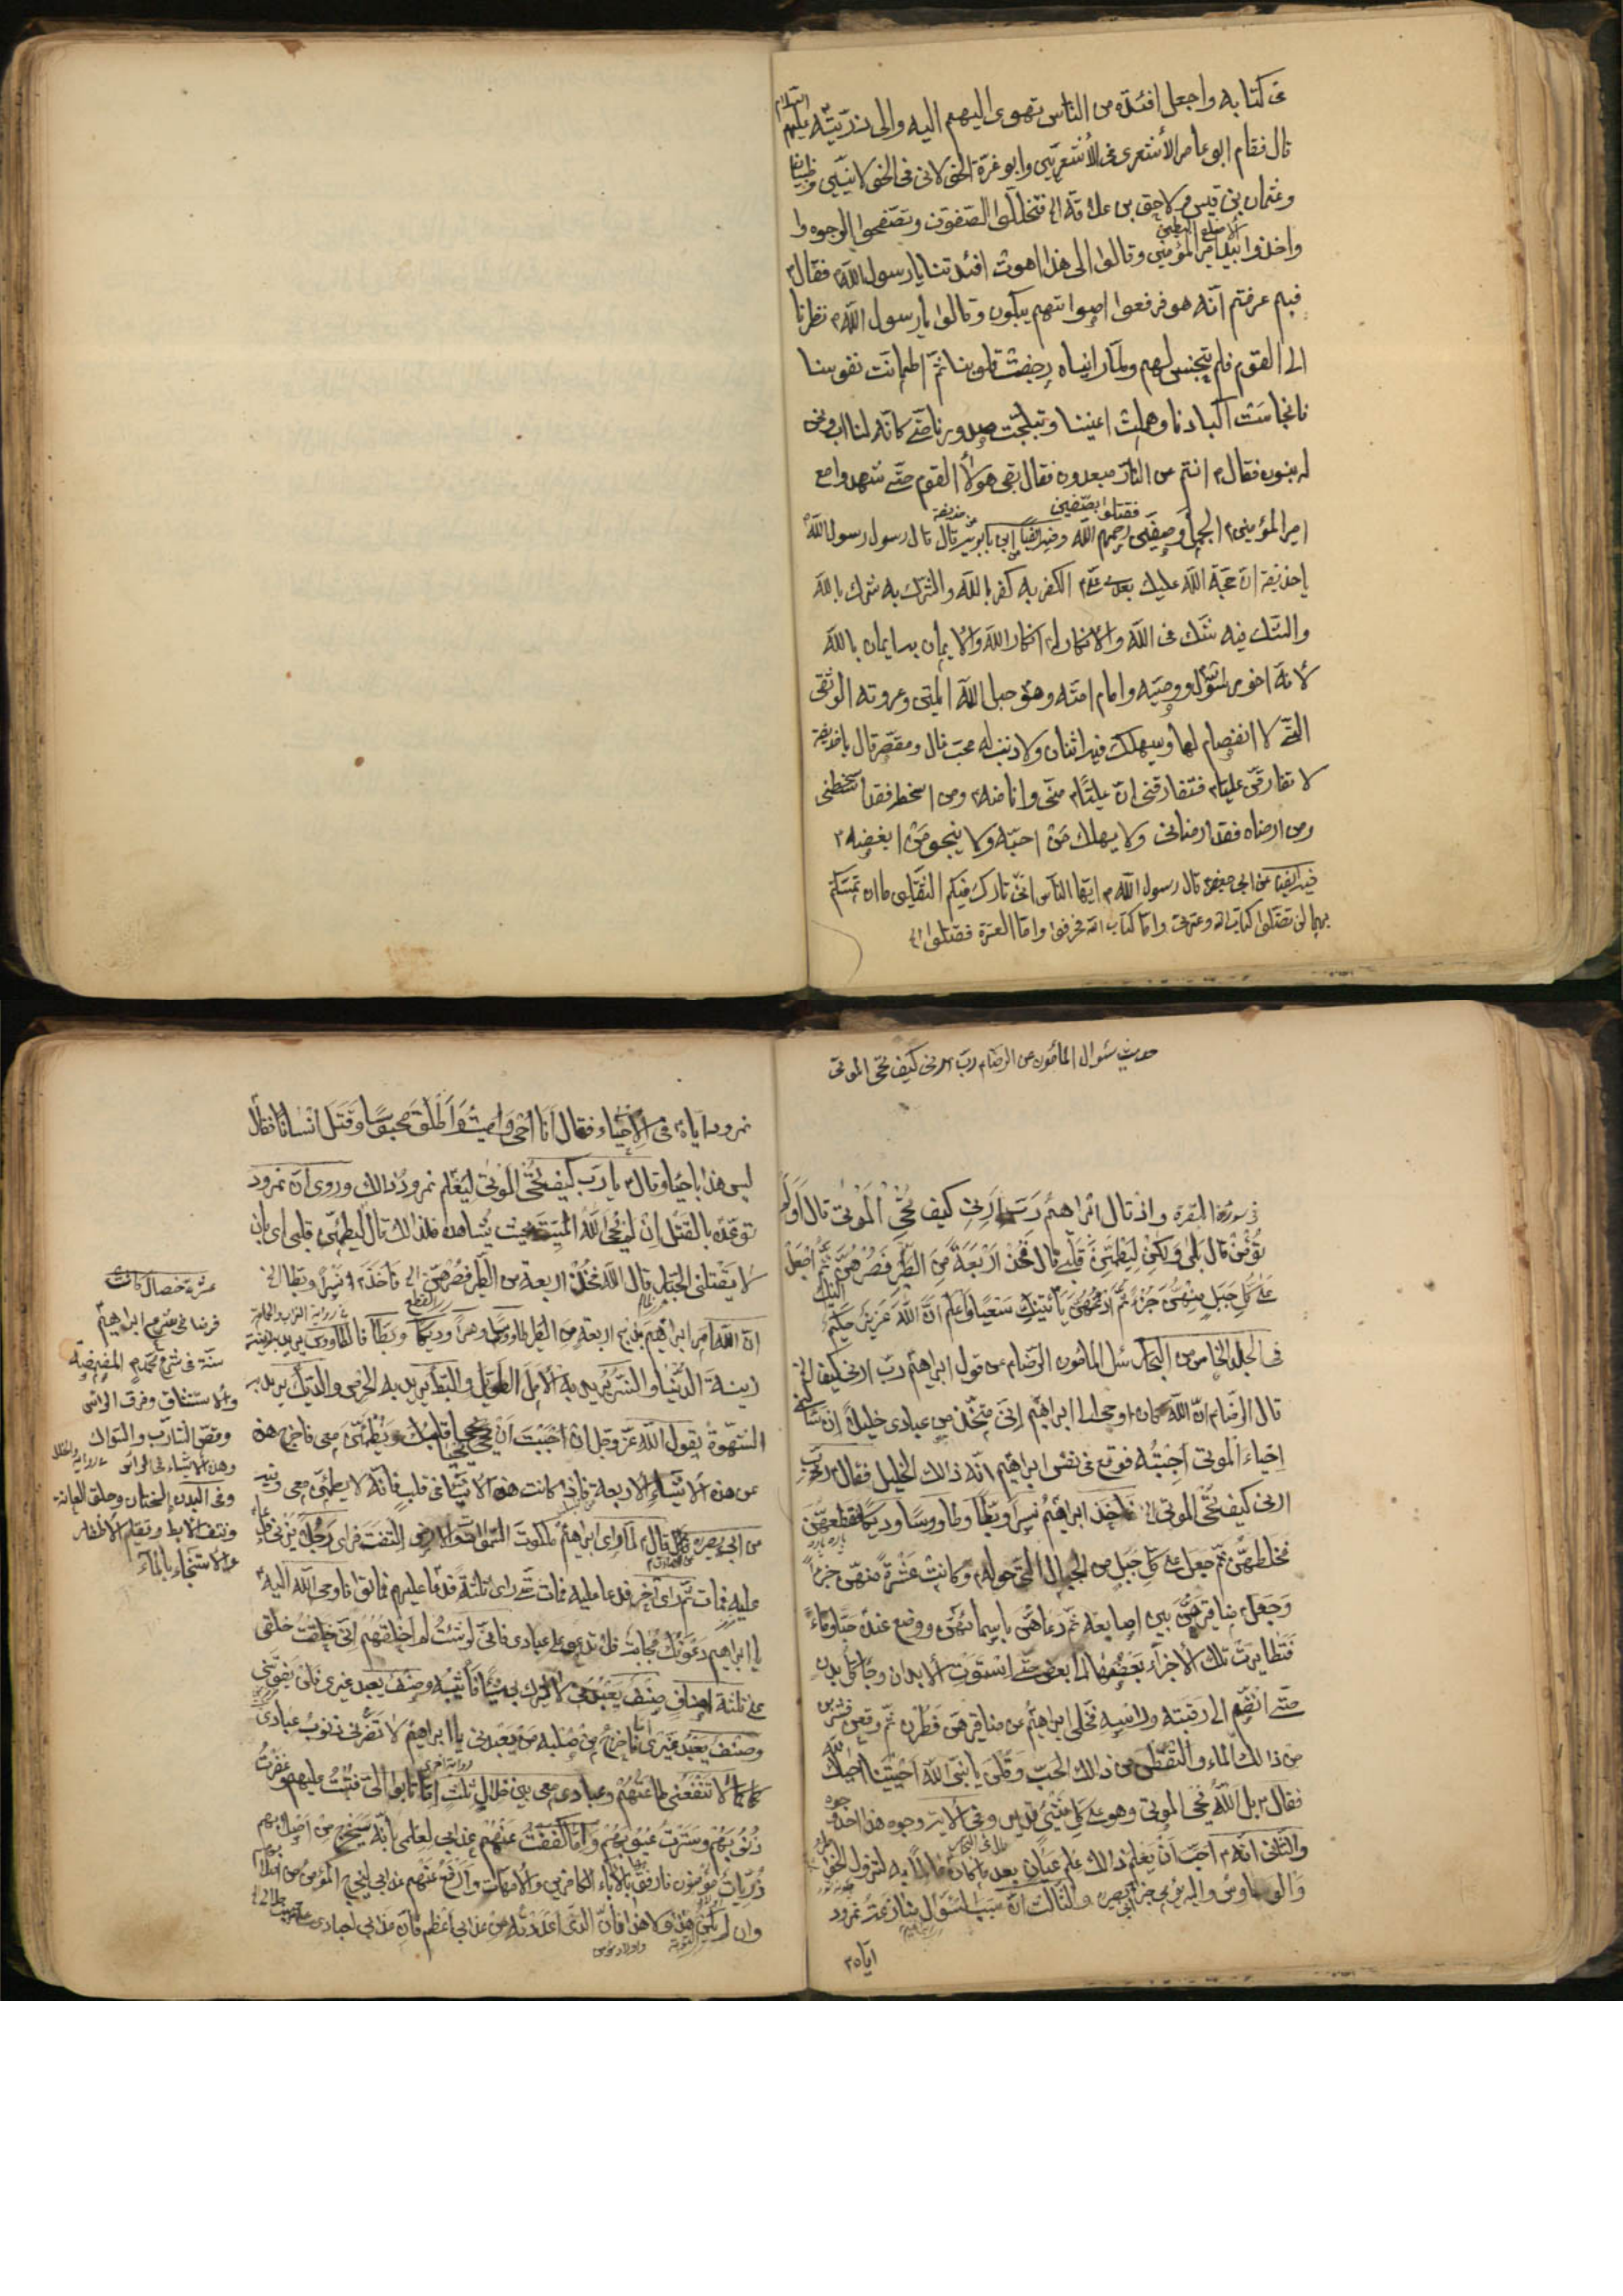 فى كتابه واجعل افئدة من الناس تهوى اليهم اليه والى ذريته عليهم السلام
قال فقام ابو عامر الأشعرى فى الأشعريين وابو غرة الخولانى فى الخولانيين وظبيان
وعثمان بن قيس ولاحق بن علاقة الخ فتخللوا الصفوف وتصفحوا الوجوه وا
واخذوا بيد امير المؤمنين الأصلع البطين وقالوا الى هذا اهوت افئدتنا يا رسول الله فقال
فبم عرفتم انه هو فرفعوا اصواتهم يبكون وقالوا يا رسول الله نظرنا
الى القوم فلم يتجنس لهم ولما رايناه رجفت قلوبنا ثم اطمانت نفوسنا
فانجاست اكبادنا وهملت اعيننا وتبلجت صدورنا حتى كانه لنا اب ونحن
له بنون فقال انتم عن النار مبعدون فقال بقى هؤلاء القوم حتى شهدوا مع
امير المؤمنين الجمل وصفين فقتلوا بصفين رحمهم الله وفيه ايضا ابن بابويه عن حذيفة قال قال رسول رسول الله
يا حذيفة ان حجة الله عليك بعدى على الكفر به كفر بالله والشرك به شرك بالله
والشك فيه شك فى الله والانكار له انكار الله والايمان به ايمان بالله
لانه اخو رسول الله ووصيه وامام امته وهو حبل الله المتين وعروته الوثقى
التى لا انفصام لها وسيهلك فيه اثنان ولا ذنب له محب غال ومقصر قال يا حذيفة
لا تفارقن عليا فتفارقنى ان عليا منى وانا منه ومن اسخطه فقد اسخطنى
ومن ارضاه فقد ارضانى ولا يهلك من احبه ولا ينجو من ابغضه
فيه ايضا عن ابى جعفر قال رسول الله ايها الناس انى تارك فيكم الثقلين ما ان تمسكتم
بهما لن تضلوا كتاب الله وعترتى واما كتاب الله فحرفوا واما العترة فقتلوا الخ
حديث سئوال المأمون عن الرضا رب ارنى كيف تحى الموتى
فى سورة البقرة واذ قال ابراهيم رب ارنى كيف تحى الموتى قال اولم
تؤمن قال بلى ولكن ليطمئن قلبى قال فخذ اربعة من الطير فصرهن اليك ثم اجعل
على كل جبل منهن جزء ثم ادعهن يأتينك سعيا واعلم ان الله عزيز حكيم
فى الجلد الخامس من البحار سئل المأمون الرضا عن قول ابراهيم رب ارنى كيف الخ
قال الرضا ان الله كان اوحى الى ابراهيم انى متخذ من عبادى خليلا ان سألنى
احياء الموتى اجبته فوقع فى نفس ابراهيم انه ذالك الخليل فقال رب
ارنى كيف تحى الموتى الخ فاخذ ابراهيم نسرا وبطا وطاووسا وديكا فقطعهن
فخلطهن ثم جعل على كل جبل من الجبال التى حوله وكانت عشرة منهن جزءا
وجعل مناقيرهن بين اصابعه ثم دعاهن باسمائهن ووضع عنده حبا وماء
فتطايرت تلك الاجزاء بعضها الى بعض حتى استوت الابدان وجاء كل بدن
حتى انضم الى رقبته ورأسه فخلى ابراهيم عن مناقيرهن فطرن ثم وقعن فشربن
من ذالك الماء والتقطن من ذالك الحب وقلن يا نبى الله احييتنا احياك الله
فقال بل الله يحى الموتى وهو على كل شئ قدير وفى الآية وجوه هذا احد وجوه
والثانى انه احب ان يعلم ذالك علم عيان بعد ما كان عالما به
والثالث ان سبب السئوال منازعة نمرود
اياه
نمرود اياه فى الاحياء فقال انا احى واميت واطلق محبوسا وقتل انسانا فقال
ليس هذا باحياء وقال يا رب كيف تحى الموتى ليعلم نمرود ذالك وروى ان نمرود
توعده بالقتل ان لم يحى الله الميت بحيث يشاهده فلذالك قال ليطمئن قلبى اى بان
لا يقتلنى الجبار قال الله فخذ اربعة من الطير فصرهن الخ فأخذ نسرا وبطا الخ
ان الله امر ابراهيم بذبح اربعة من الطير طاووس ونسرا وديكا وبطا فالطاووس يريد به زينة
زينة الدنيا والنسر يريد به الامل الطويل والبط يريد به الحرص والديك يريد به
الشهوة يقول الله عز وجل ان احببت ان يحيى قلبك ويطمئن معى فاخرج هذه
عن هذه الاشياء الاربعة فاذا كانت هذه الاشياء فى قلب فانه لا يطمئن معى وفيه
عن ابى بصير قال لما رأى ابراهيم ملكوت السموات والارض التفت فراى رجلا يزنى فدعا
عليه فمات ثم رأى آخر فدعا عليه فمات حتى رأى ثلثة فدعا عليهم فماتوا فاوحى الله اليه
يا ابراهيم دعوتك مجابة فلا تدعو على عبادى فانى لو شئت لم اخلقهم انى خلقت خلقى
على ثلثة اصناف صنف يعبدنى لا يشرك بى شيئا فأثيبه وصنف يعبد غيرى فلن يفوتنى
وصنف يعبد غيرى فاخرج من صلبه من يعبدنى يا ابراهيم لا تضرنى ذنوب عبادى
كما لا تنفعنى طاعتهم وعبادى معى بين خلال ثلث اما تابوا الى فتبت عليهم وغفرت
ذنوبهم وسترت عيوبهم واما كففت عنهم عذابى لعلمى بانه سيخرج من اصلابهم
ذريات مؤمنون فارفق بالآباء الكافرين والامهات وارفع عنهم عذابى ليخرج المؤمن من اصلابهم
وان لم يكن هذا ولا هذا فان الذى اعددته من عذابى اعظم فان عذابى لعبادى
عشرة خصال كانت
فرضا فى شرع ابراهيم
سنة فى شرع محمد المضمضة
والاستنشاق وفرق الرأس
وقص الشارب والسواك
وهذه الاشياء فى الرأس
وفى البدن الختان وحلق العانة
ونتف الابط وتقليم الاظفار
والاستنجاء بالماء